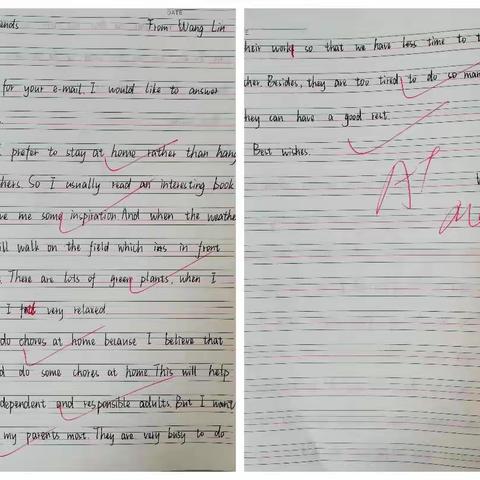 DATE
ends From Wang Lin
for your e-mail. I would like to answer
I prefer to stay at home rather than hang
thers. So I usually read an interesting book
ve me some inspiration. And when the weathe
ill walk on the field which is in front
. There are lots of green plants, when I
I felt very relaxed
do chores at home because I believe that
d do some chores at home. This will help
dependent and responsible adults. But I want
my parents most. They are very busy to do
heir work so that we have less time to t
ther. Besides, they are too tired to do so man
hey can have a good rest.
Best wishes.
A+